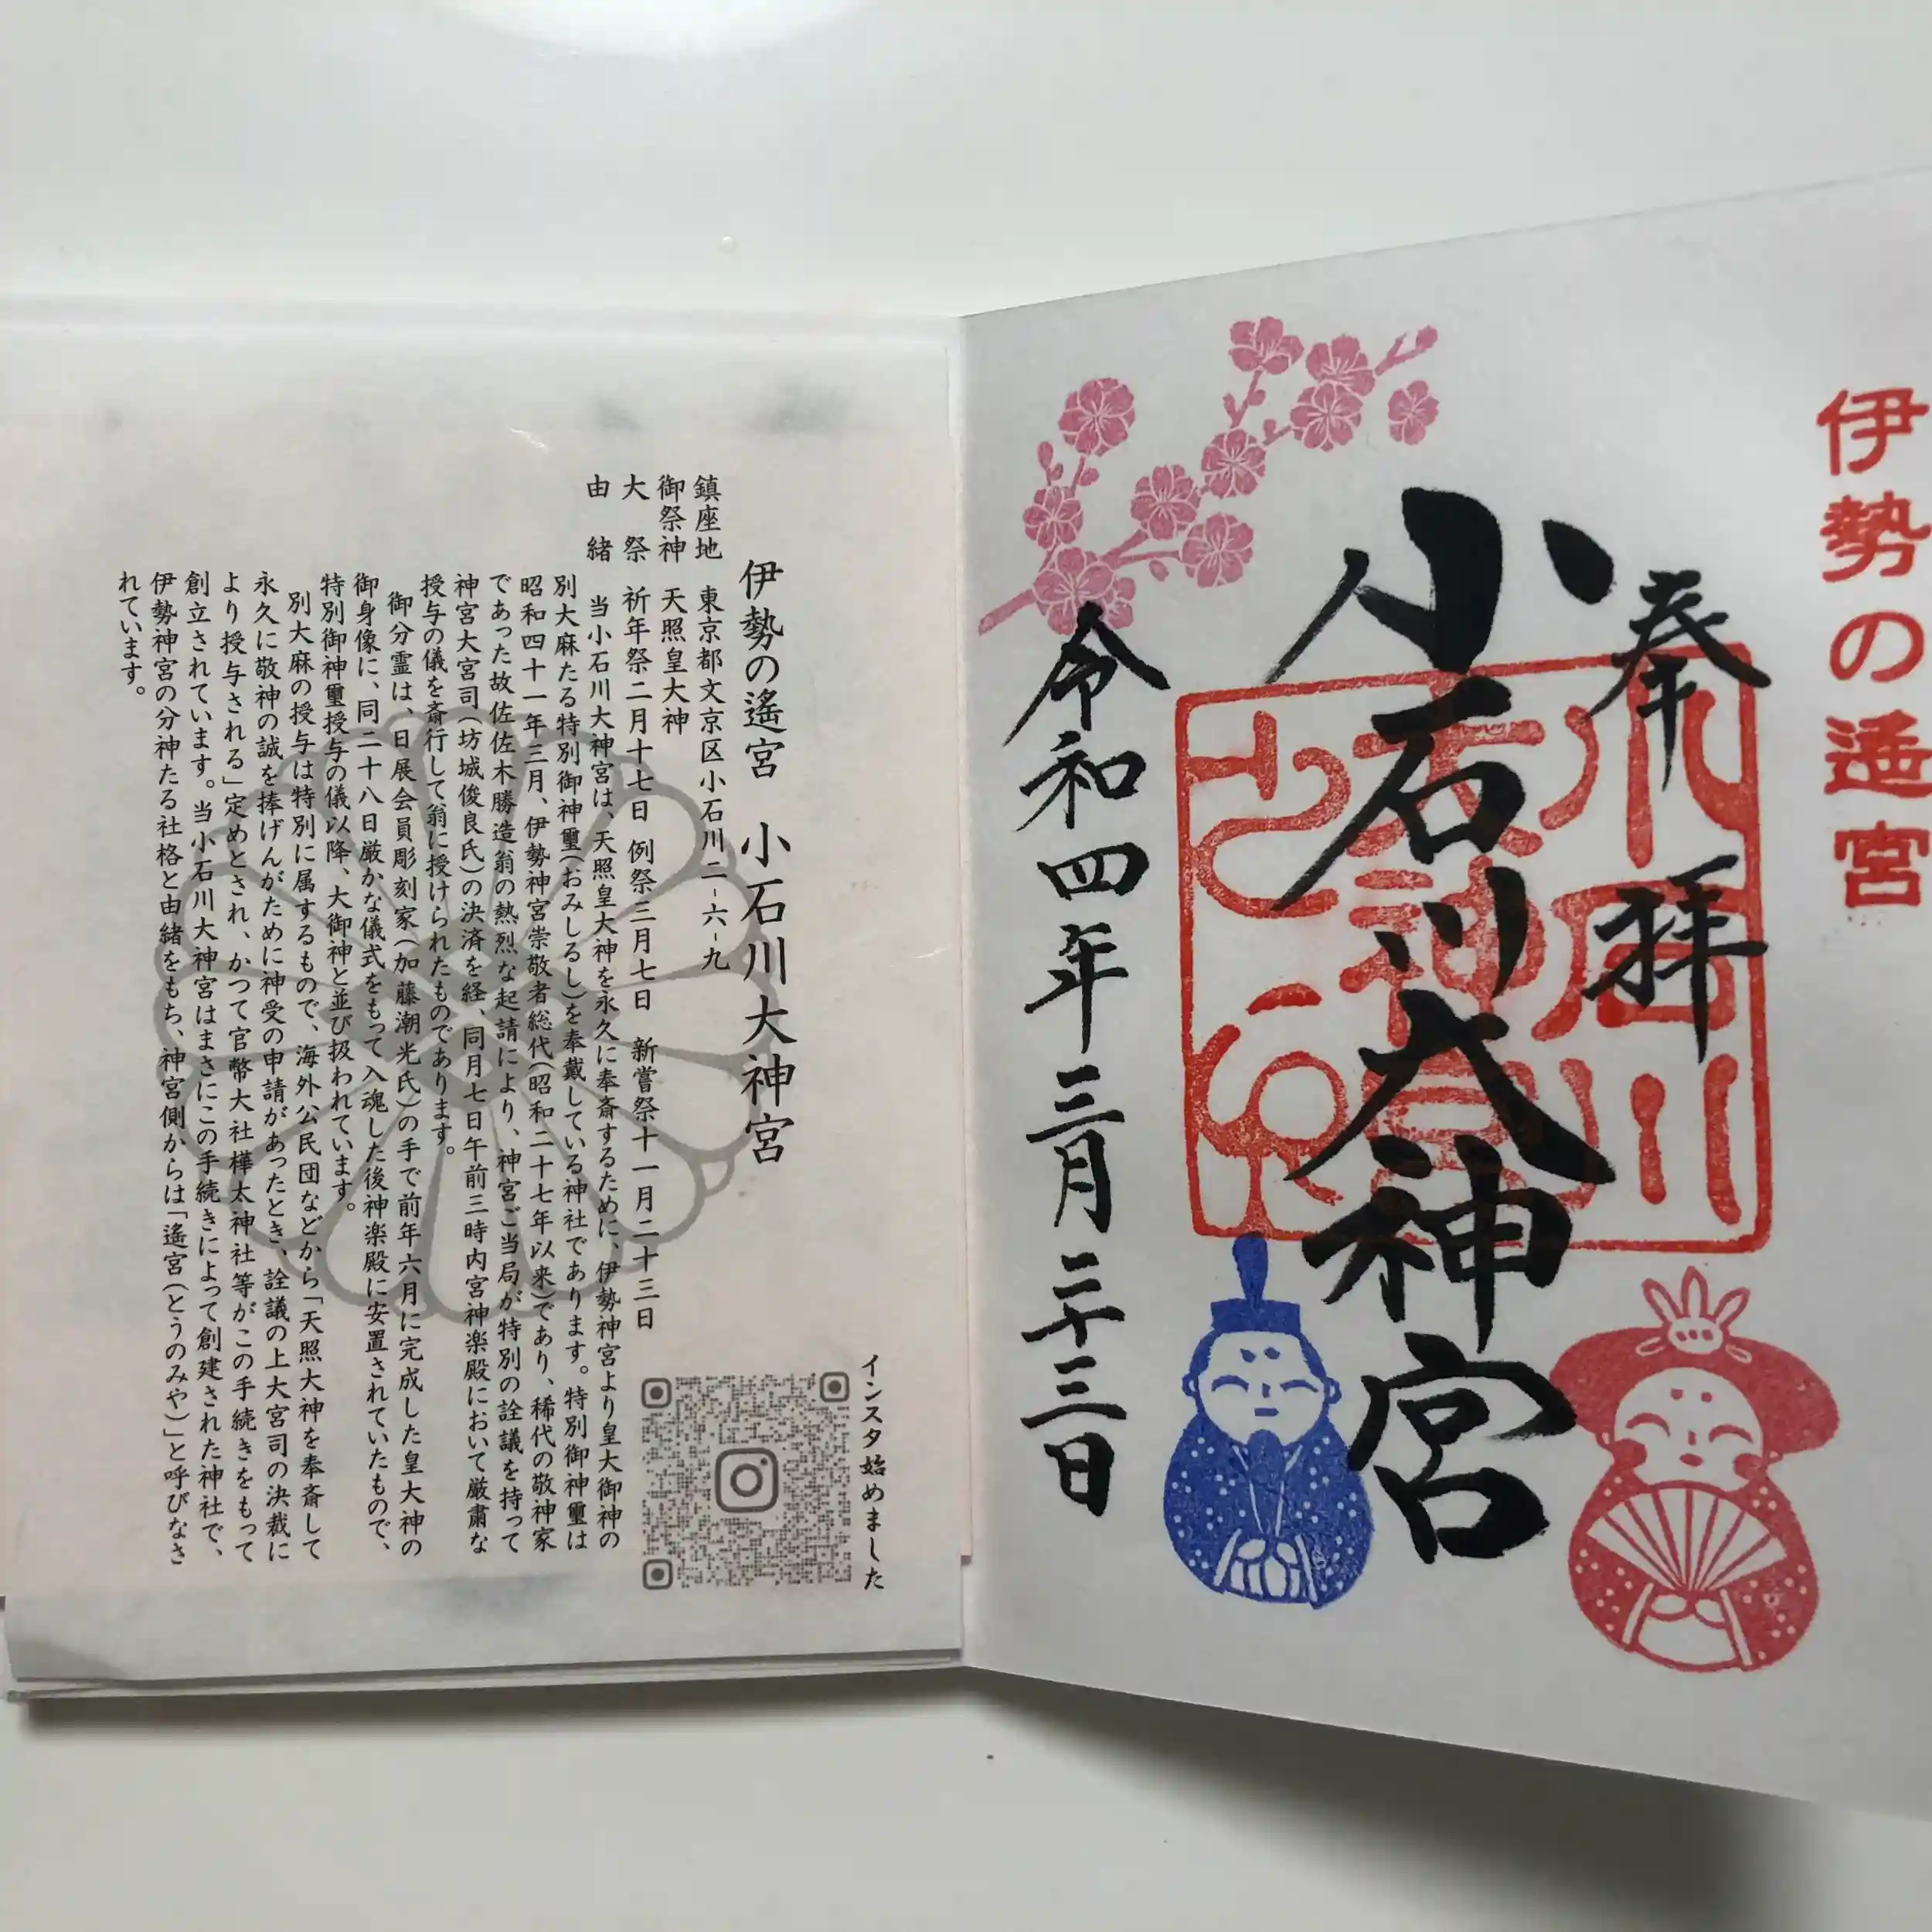 伊勢の遙宮
奉拝
小石川大神宮
令和四年三月二十三日
インスタ始めました
伊勢の遙宮 小石川大神宮
鎮座地 東京都文京区小石川二-六-九
御祭神 天照皇大神
大祭 祈年祭二月十七日 例祭三月七日 新嘗祭十一月二十三日
由緒 当小石川大神宮は、天照皇大神を永久に奉斎するために、伊勢神宮より皇大御神の
別大麻たる特別御神璽(おみしるし)を奉戴している神社であります。特別御神璽は
昭和四十一年三月、伊勢神宮崇敬者総代(昭和二十七年以来)であり、稀代の敬神家
であった故佐佐木勝造翁の熱烈な起請により、神宮ご当局が特別の詮議を持って
神宮大宮司(坊城俊良氏)の決済を経、同月七日午前三時内宮神楽殿において厳粛な
授与の儀を斎行して翁に授けられたものであります。
御分霊は、日展会員彫刻家(加藤潮光氏)の手で前年六月に完成した皇大神の
御身像に、同二十八日厳かな儀式をもって入魂した後神楽殿に安置されていたもので、
特別御神璽授与の儀以降、大御神と並び扱われています。
別大麻の授与は特別に属するもので、海外公民団などから「天照大神を奉斎して
永久に敬神の誠を捧げんがために神受の申請があったとき、詮議の上大宮司の決裁に
より授与される」定めとされ、かつて官幣大社樺太神社等がこの手続きをもって
創立されています。当小石川大神宮はまさにこの手続きによって創建された神社で、
伊勢神宮の分神たる社格と由緒をもち、神宮側からは「遙宮(とうのみや)」と呼びなさ
れています。